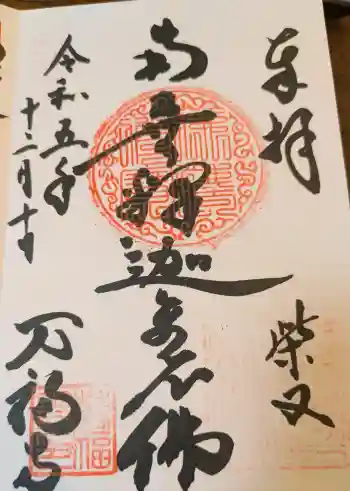 奉拝
柴又
南無釋迦牟尼佛
令和五年
十二月十日
万福寺